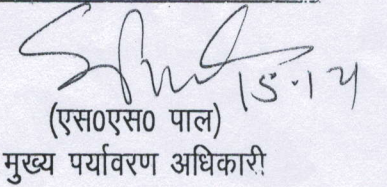 15.1.14
(एस0एस0 पाल)
मुख्य पर्यावरण अधिकारी